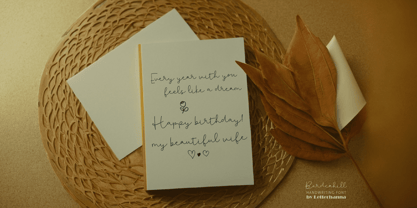 Every year with you
feels like a dream
Happy birthday!
my beautiful wife
HANDWRITING FONT